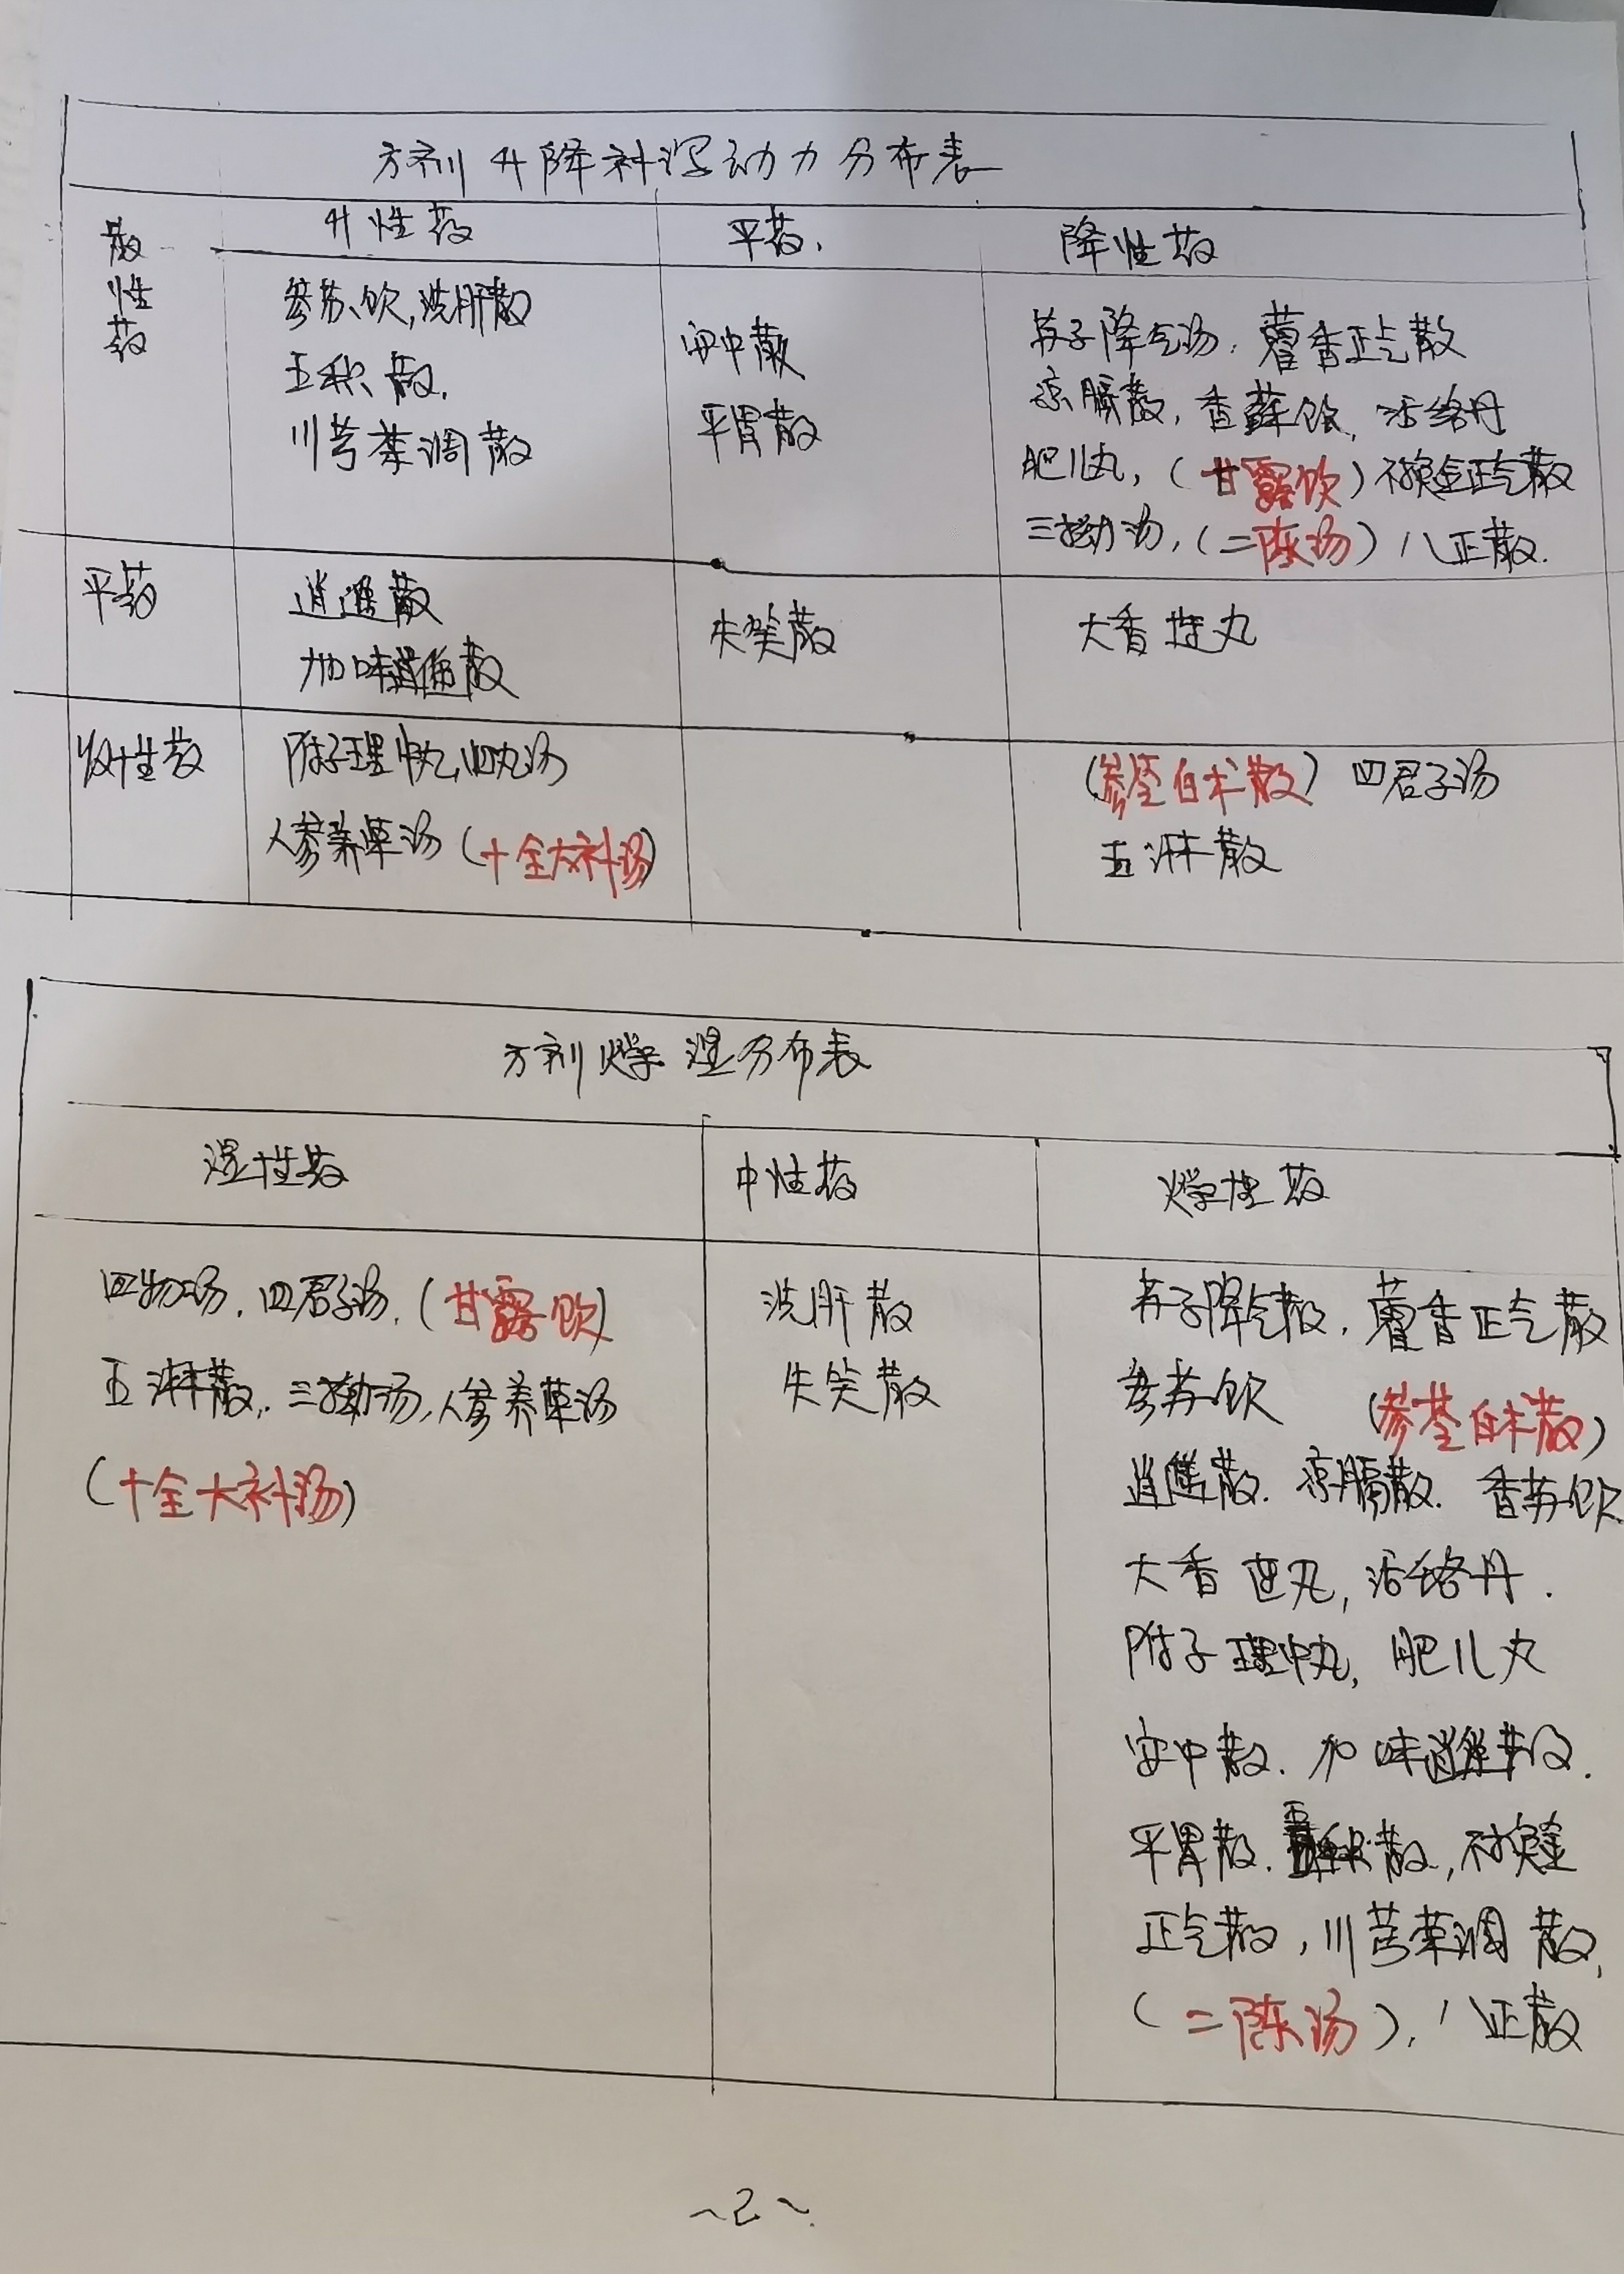 方剂升降补泻动力分布表
升性药 平药. 降性药
散性药
参苏饮,洗肝散
五积散.
川芎茶调散
安中散
平胃散
苏子降气汤,藿香正气散
凉膈散,香蘇饮,活络丹
肥儿丸,(甘露饮)不换金正气散
三拗汤,(二陈汤)八正散.
平药
逍遥散
加味逍遥散
失笑散
大香连丸
收性药
附子理中丸,四丸汤
人参养荣汤(十全大补汤)
(参苓白术散)四君子汤
五淋散
方剂燥湿分布表
湿性药 中性药 燥性药
四物汤.四君子汤.(甘露饮)
五淋散,三拗汤,人参养荣汤
(十全大补汤)
洗肝散
失笑散
苏子降气散,藿香正气散
参苏饮 (参苓白术散)
逍遥散.凉膈散.香苏饮
大香连丸,活络丹.
附子理中丸,肥儿丸
安中散.加味逍遥散.
平胃散.五积散,不换金
正气散,川芎茶调散,
(二陈汤),八正散
~2~